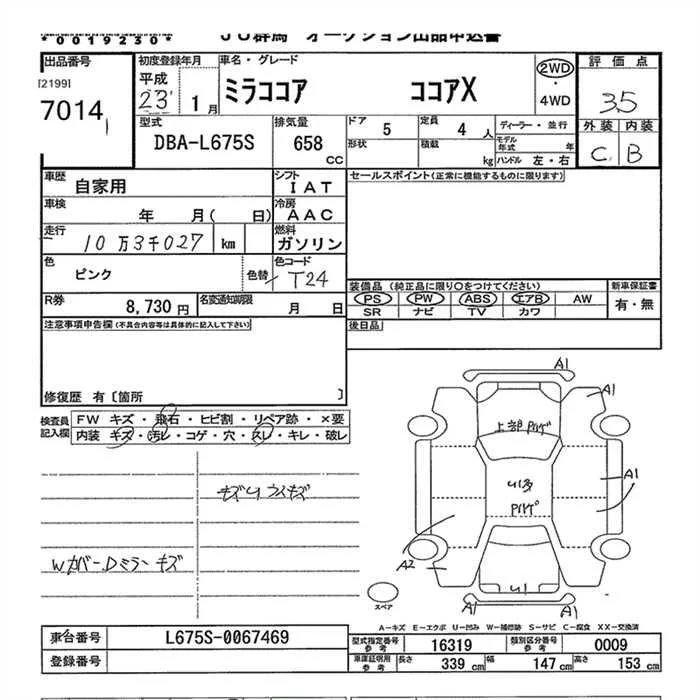 *0019230*
JU群馬 オークション出品申込書
出品番号 初度登録年月 車名・グレード 評価点
[2199] 平成 ミラココア ココアX 2WD
7014 23 1月 ・4WD 3.5
型式 排気量 ドア 5 定員 4人 ディーラー・並行 外装 内装
DBA-L675S 658 CC 形状 積載 kg モデル年式 年 C B
ハンドル 左・右
車歴 自家用 シフト IAT セールスポイント(正常に機能するものに限ります)
車検 年 月( 日) 冷房 AAC
走行 10万3千027 km 燃料 ガソリン
色 ピンク 色替 色コード T24
装備品(純正品に限り○をつけてください) 新車保証書
R券 8,730円 名変通知期限 月 日 PS PW ABS エアB AW 有・無
SR ナビ TV カワ
注意事項申告欄(不具合内容等は具体的に記入して下さい) 後日品
修復歴 有〔箇所 〕
検査員記入欄 FW キズ・飛石・ヒビ割・リペア跡・×要
内装 キズ・汚レ・コゲ・穴・スレ・キレ・破レ
A1
A1
上部
A1
A2
U1
A1 A1
スペア
A-キズ E-エクボ U-凹み W-補修跡 S-サビ C-腐食 XX-交換済
車台番号 L675S-0067469 型式指定番号 参考 16319 類別区分番号 参考 0009
登録番号 車庫証明用 参考 長さ 339cm 幅 147cm 高さ 153cm